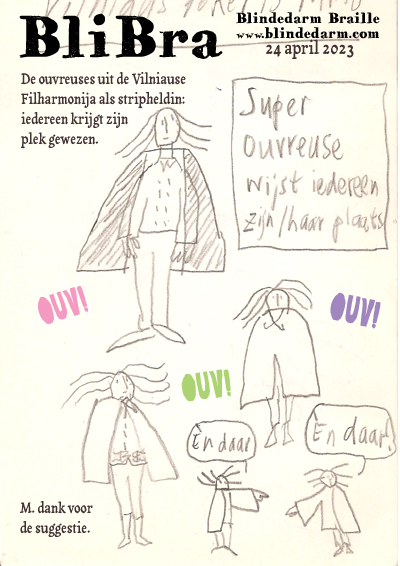 BliBra
Blindedarm Braille
www.blindedarm.com
24 april 2023
De ouvreuses uit de Vilniause
Filharmonija als stripheldin:
iedereen krijgt zijn
plek gewezen.
Super
ouvreuse
wijst iedereen
zijn/haar plaats
OUV!
OUV!
OUV!
En daar
En daar!
M. dank voor
de suggestie.